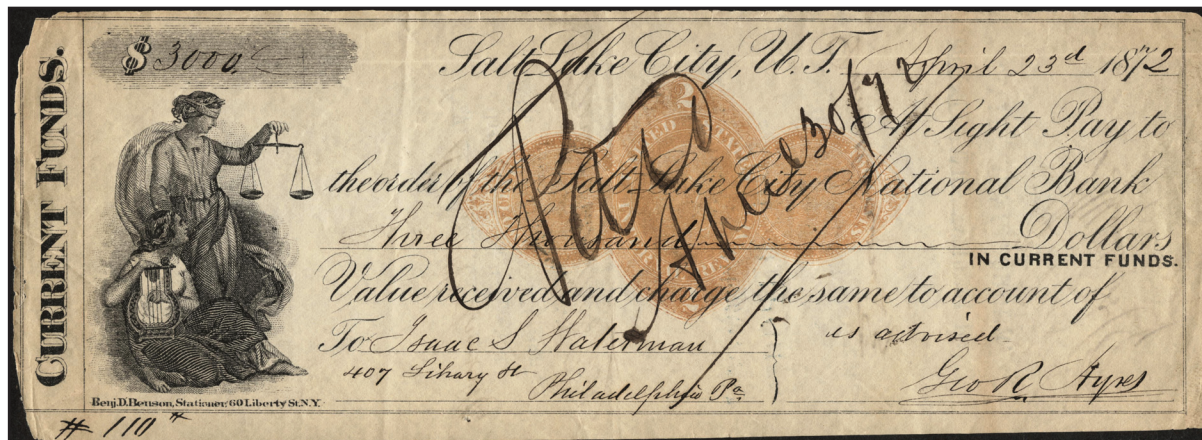 CURRENT FUNDS.
$ 3000.
Salt Lake City, U.T. April 23d 1872
At Sight Pay to
the order of the Salt Lake City National Bank
Three Thousand Dollars
IN CURRENT FUNDS.
Value received and charge the same to account of
as advised
To Isaac S Waterman
407 Library St
Philadelphia Pa
Geo R. Ayres
Benj. D. Benson, Stationer, 60 Liberty St. N.Y.
# 110
Paid
April 30/72
UNITED STATES
2